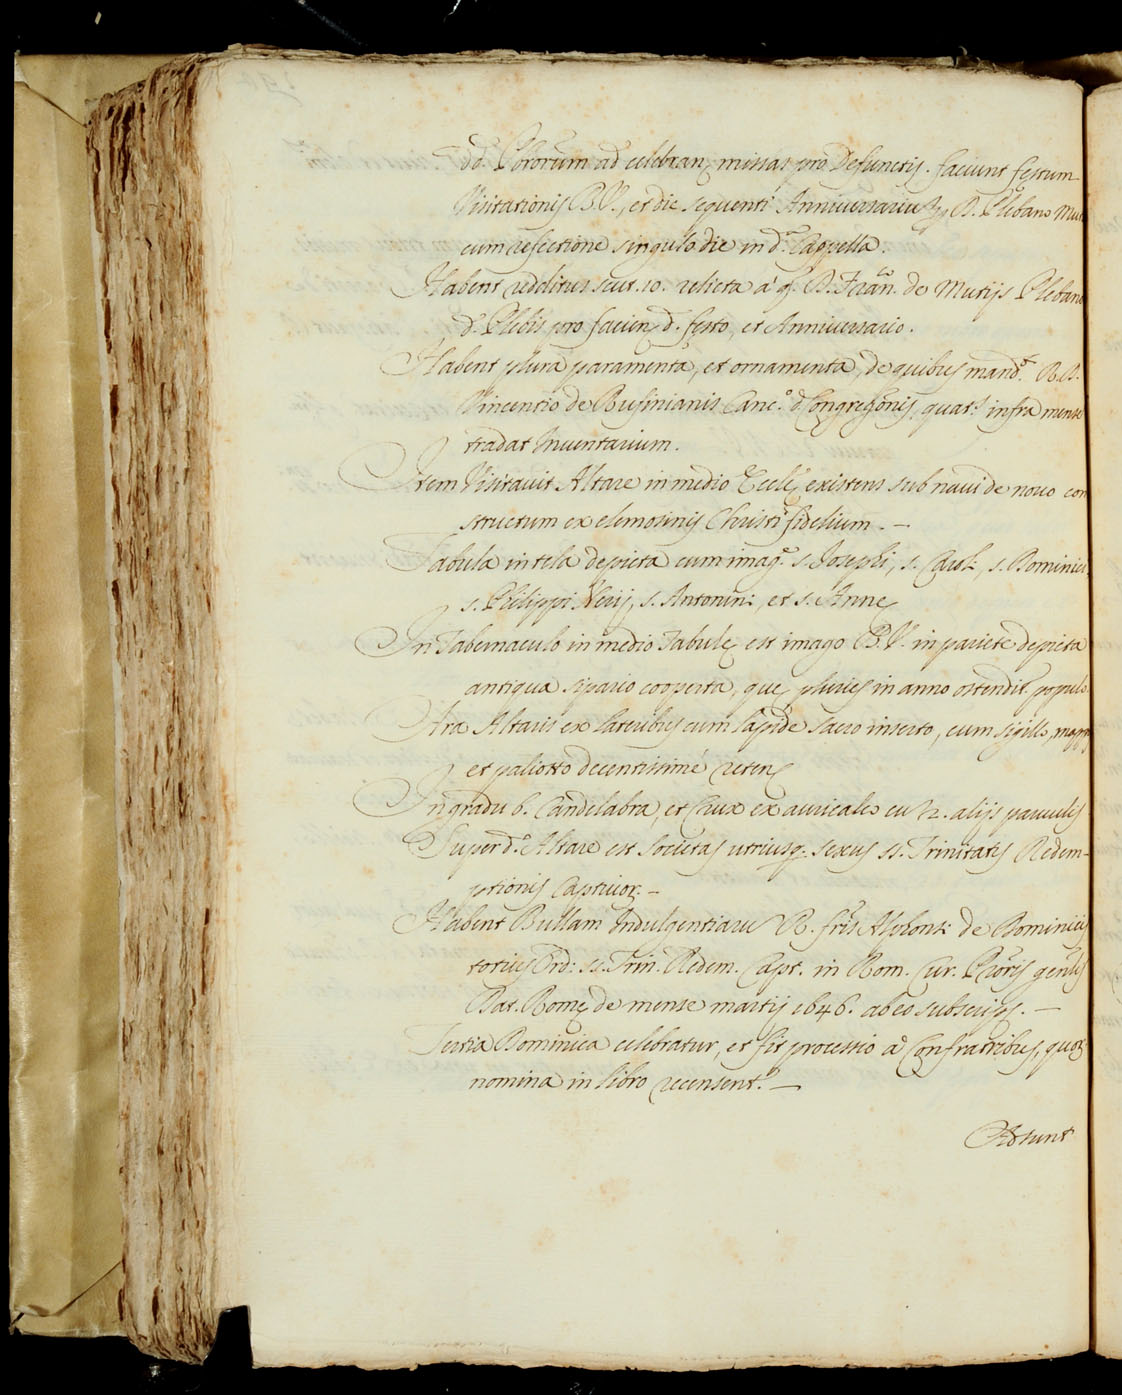 dd. Pbrorum ad celebran. missas pro Defunctis. faciunt festum
Visitationis B.V., et die sequenti Anniversariu pro D. Plebano Mut
cum refectione singulo die in d.ª Cappella.
Habent redditus scut. 10. relicta à q. D. Fran.co de Mutijs Plebano
d.ª Plebis pro facien. d. festo, et Anniversario.
Habent plura paramenta, et ornamenta, de quibus mand.t R.D.
Vincentio de Businianis Canc.º d. Congregonis, quat.s infra mense
tradat Inventarium.
Item Visitavit Altare in medio Eccłę existens sub navi de novo con
structum ex elemosinis Christi fidelium. —
Tabula in tela depicta cum imag.e s. Josephi, s. Caroli, s. Dominici
s. Philippi Nerij, s. Antonini, et s. Annę
In Tabernaculo in medio Tabulę est imago B.V. in pariete depicta
antiqua sipario cooperta, quę pluries in anno ostendit. populo.
Ara Altaris ex lateribus cum lapide sacro inserto, cum sigillo, mappis
et paliotto decentissimé reten.
In gradu 6. Candelabra, et Crux ex auricalco cu 12. alijs parvulis
Super d.º Altare est Societas utriusq. sexus ss. Trinitatis Redem-
ptionis Captivor. —
Habent Bullam Indulgentiaru R. fris Alphonsi de Dominicis
totius Ord: ss. Trin. Redem. Capt. in Rom. Cur. Prioris genlis
Dat. Romę de mense martij 1646. ab eo subscript. —
Tertia Dominica celebratur, et fit processio à Confratribus, quor.
nomina in libro recensent.r —
Adsunt